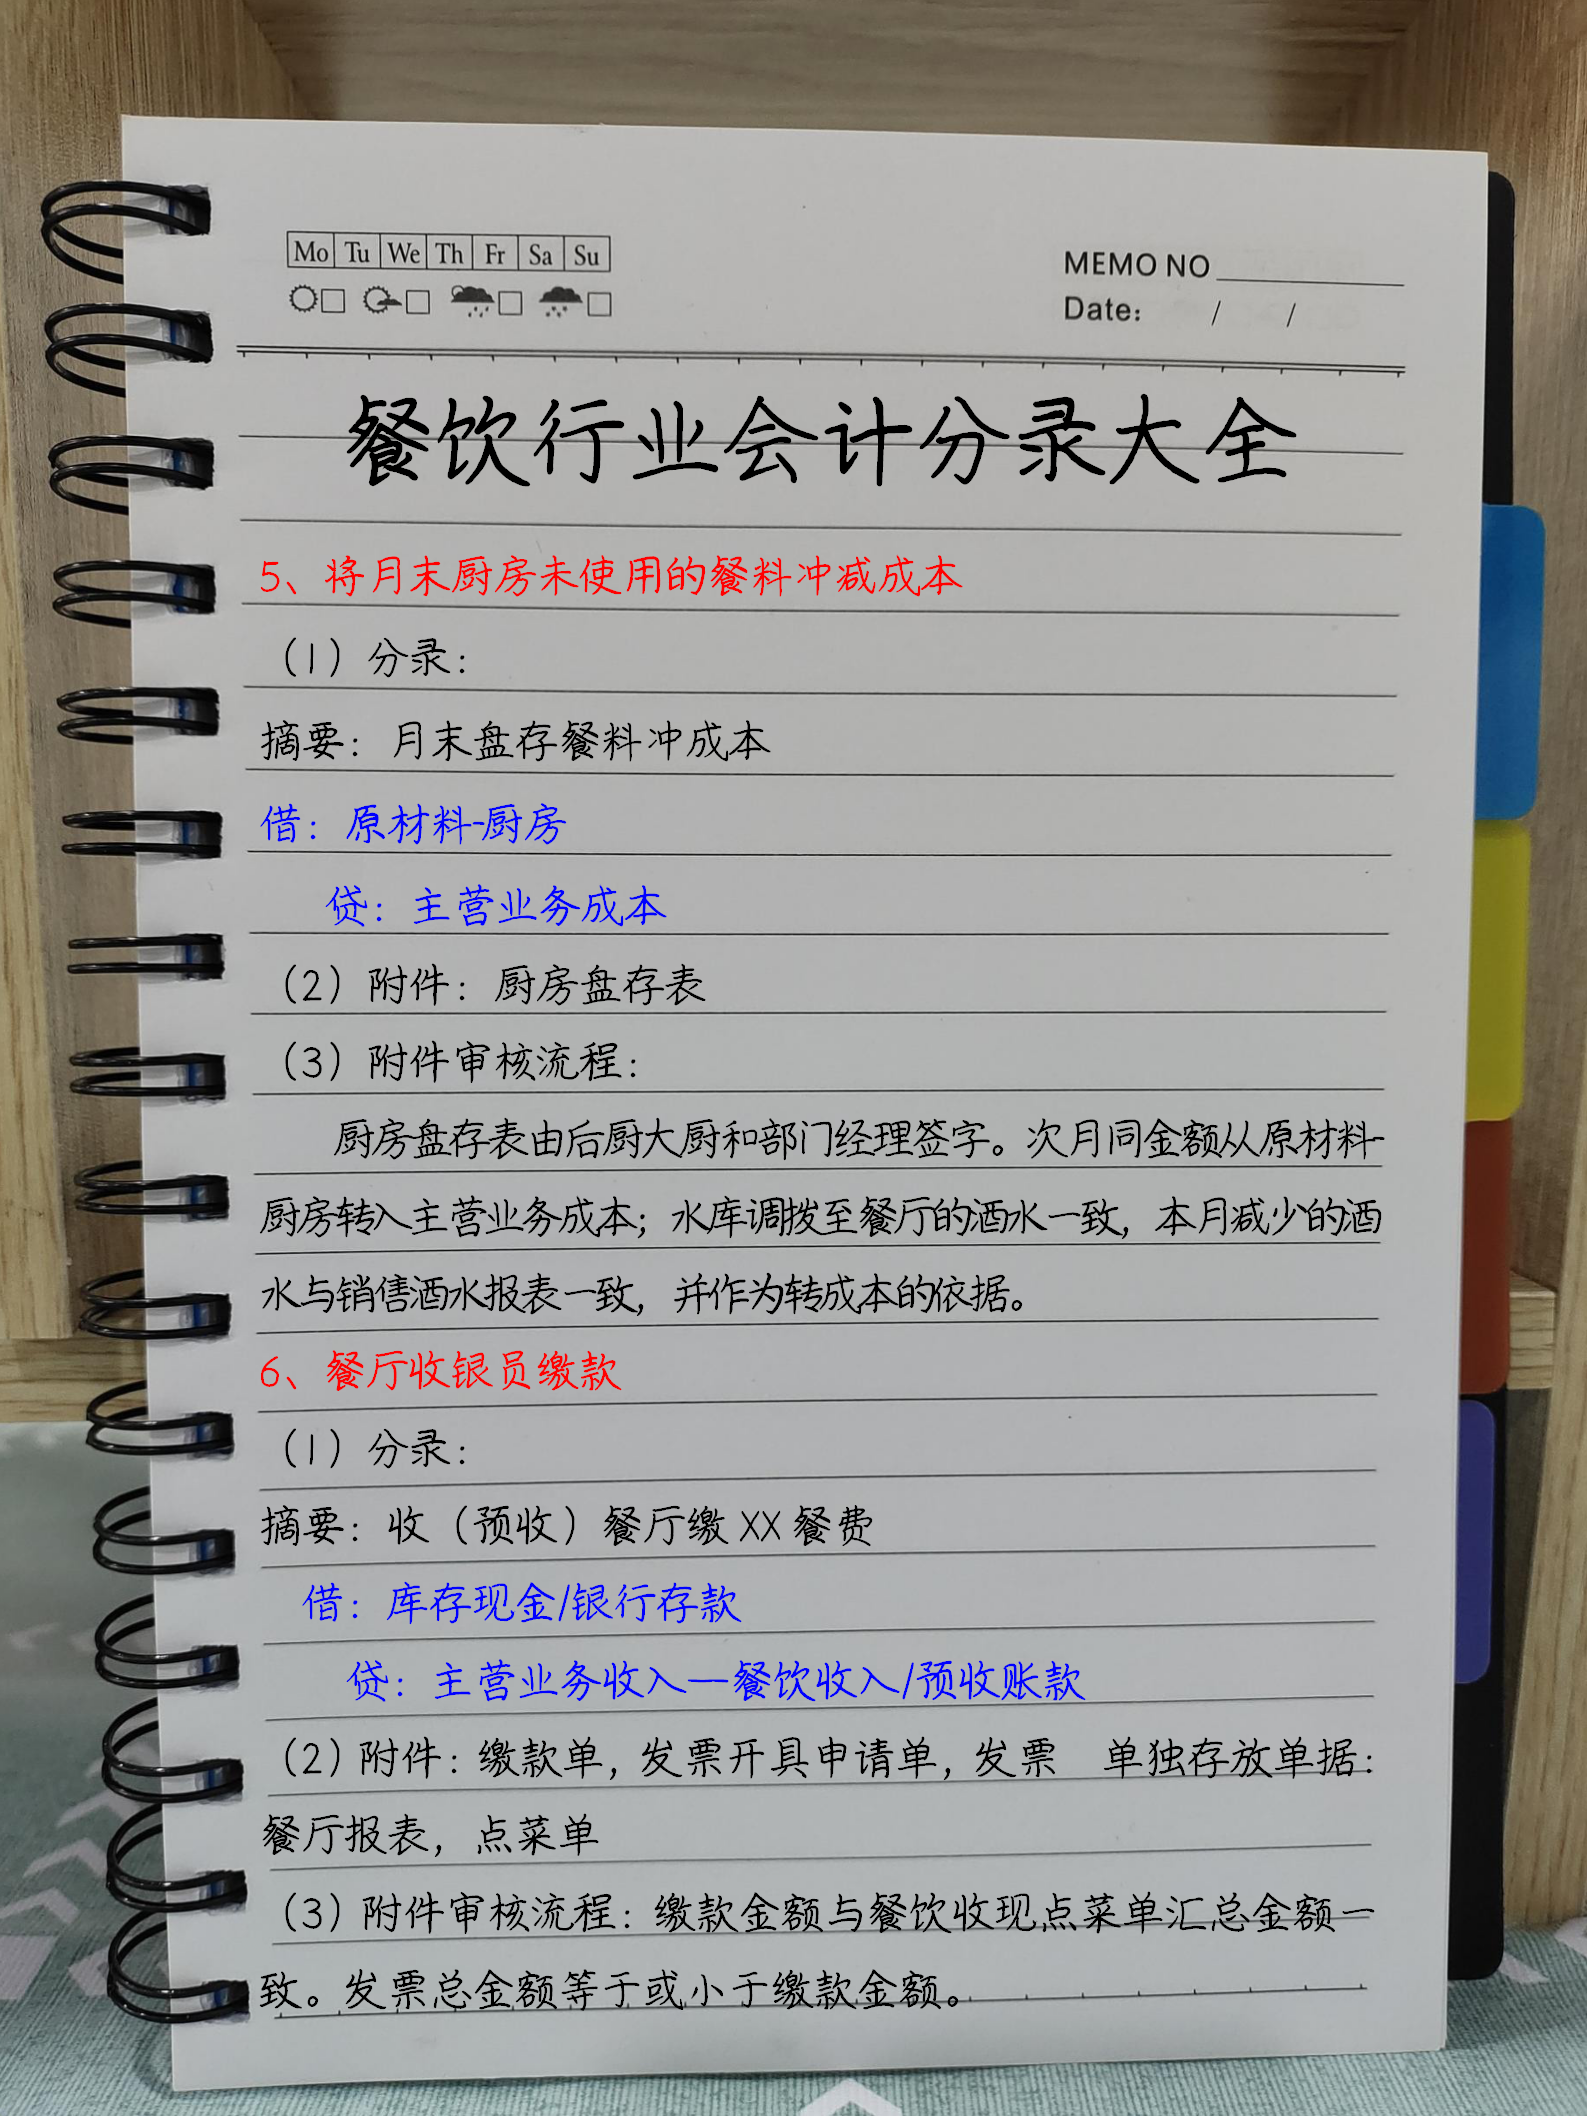 Mo Tu We Th Fr Sa Su
MEMO NO
Date: / /
餐饮行业会计分录大全
5、将月末厨房未使用的餐料冲减成本
（1）分录：
摘要：月末盘存餐料冲成本
借：原材料-厨房
贷：主营业务成本
（2）附件：厨房盘存表
（3）附件审核流程：
厨房盘存表由后厨大厨和部门经理签字。次月同金额从原材料-
厨房转入主营业务成本；水库调拨至餐厅的酒水一致，本月减少的酒
水与销售酒水报表一致，并作为转成本的依据。
6、餐厅收银员缴款
（1）分录：
摘要：收（预收）餐厅缴 XX 餐费
借：库存现金/银行存款
贷：主营业务收入—餐饮收入/预收账款
（2）附件：缴款单，发票开具申请单，发票 单独存放单据：
餐厅报表，点菜单
（3）附件审核流程：缴款金额与餐饮收现点菜单汇总金额一
致。发票总金额等于或小于缴款金额。